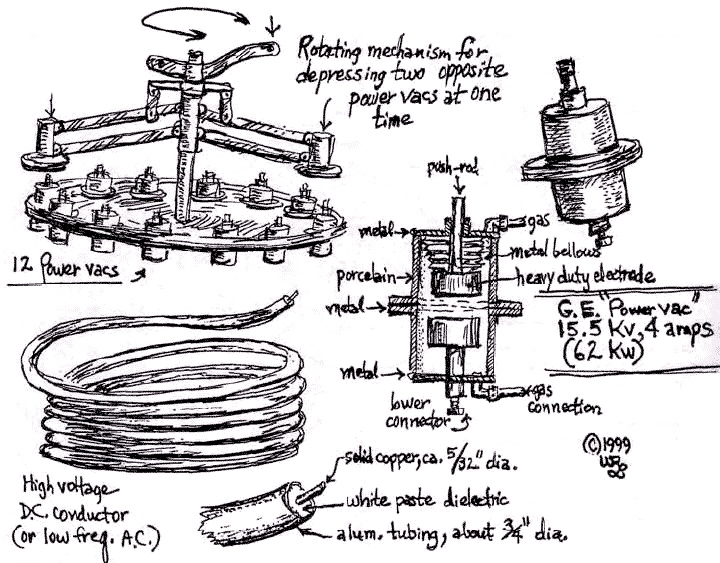 Rotating mechanism for
depressing two opposite
power vacs at one
time
12 Power vacs
push-rod
metal
gas
metal bellows
porcelain
heavy duty electrode
metal
G.E. "Power vac"
15.5 Kv, 4 amps
(62 Kw)
metal
lower
connector
gas
connection
©1999
solid copper, ca. 5/32" dia.
High voltage
D.C. conductor
(or low freq. A.C.)
white paste dielectric
alum. tubing, about 3/4" dia.